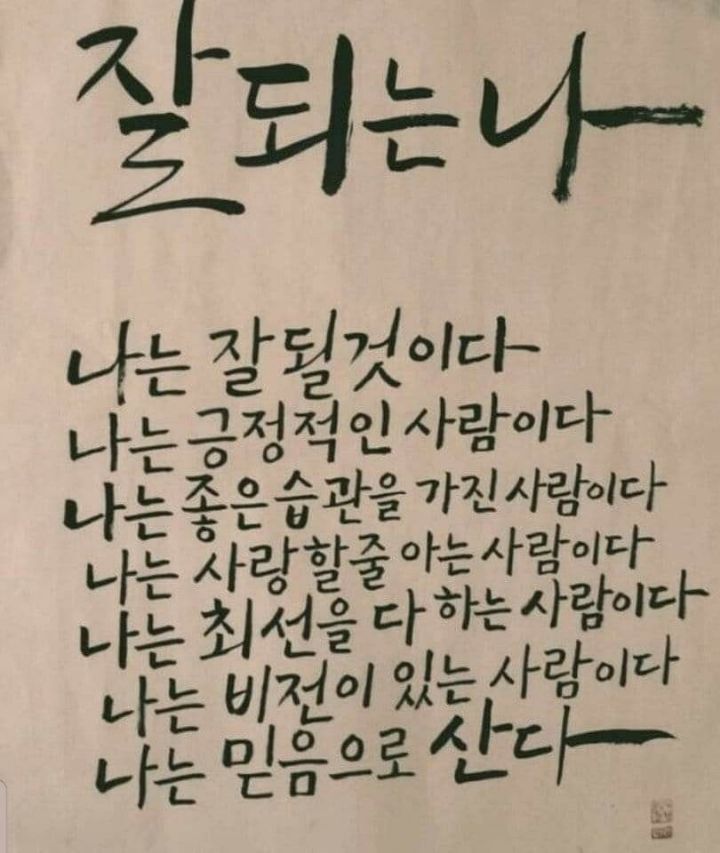 잘 되는 나
나는 잘 될것이다
나는 긍정적인 사람이다
나는 좋은 습관을 가진 사람이다
나는 사랑할줄 아는 사람이다
나는 최선을 다 하는 사람이다
나는 비전이 있는 사람이다
나는 믿음으로 산다